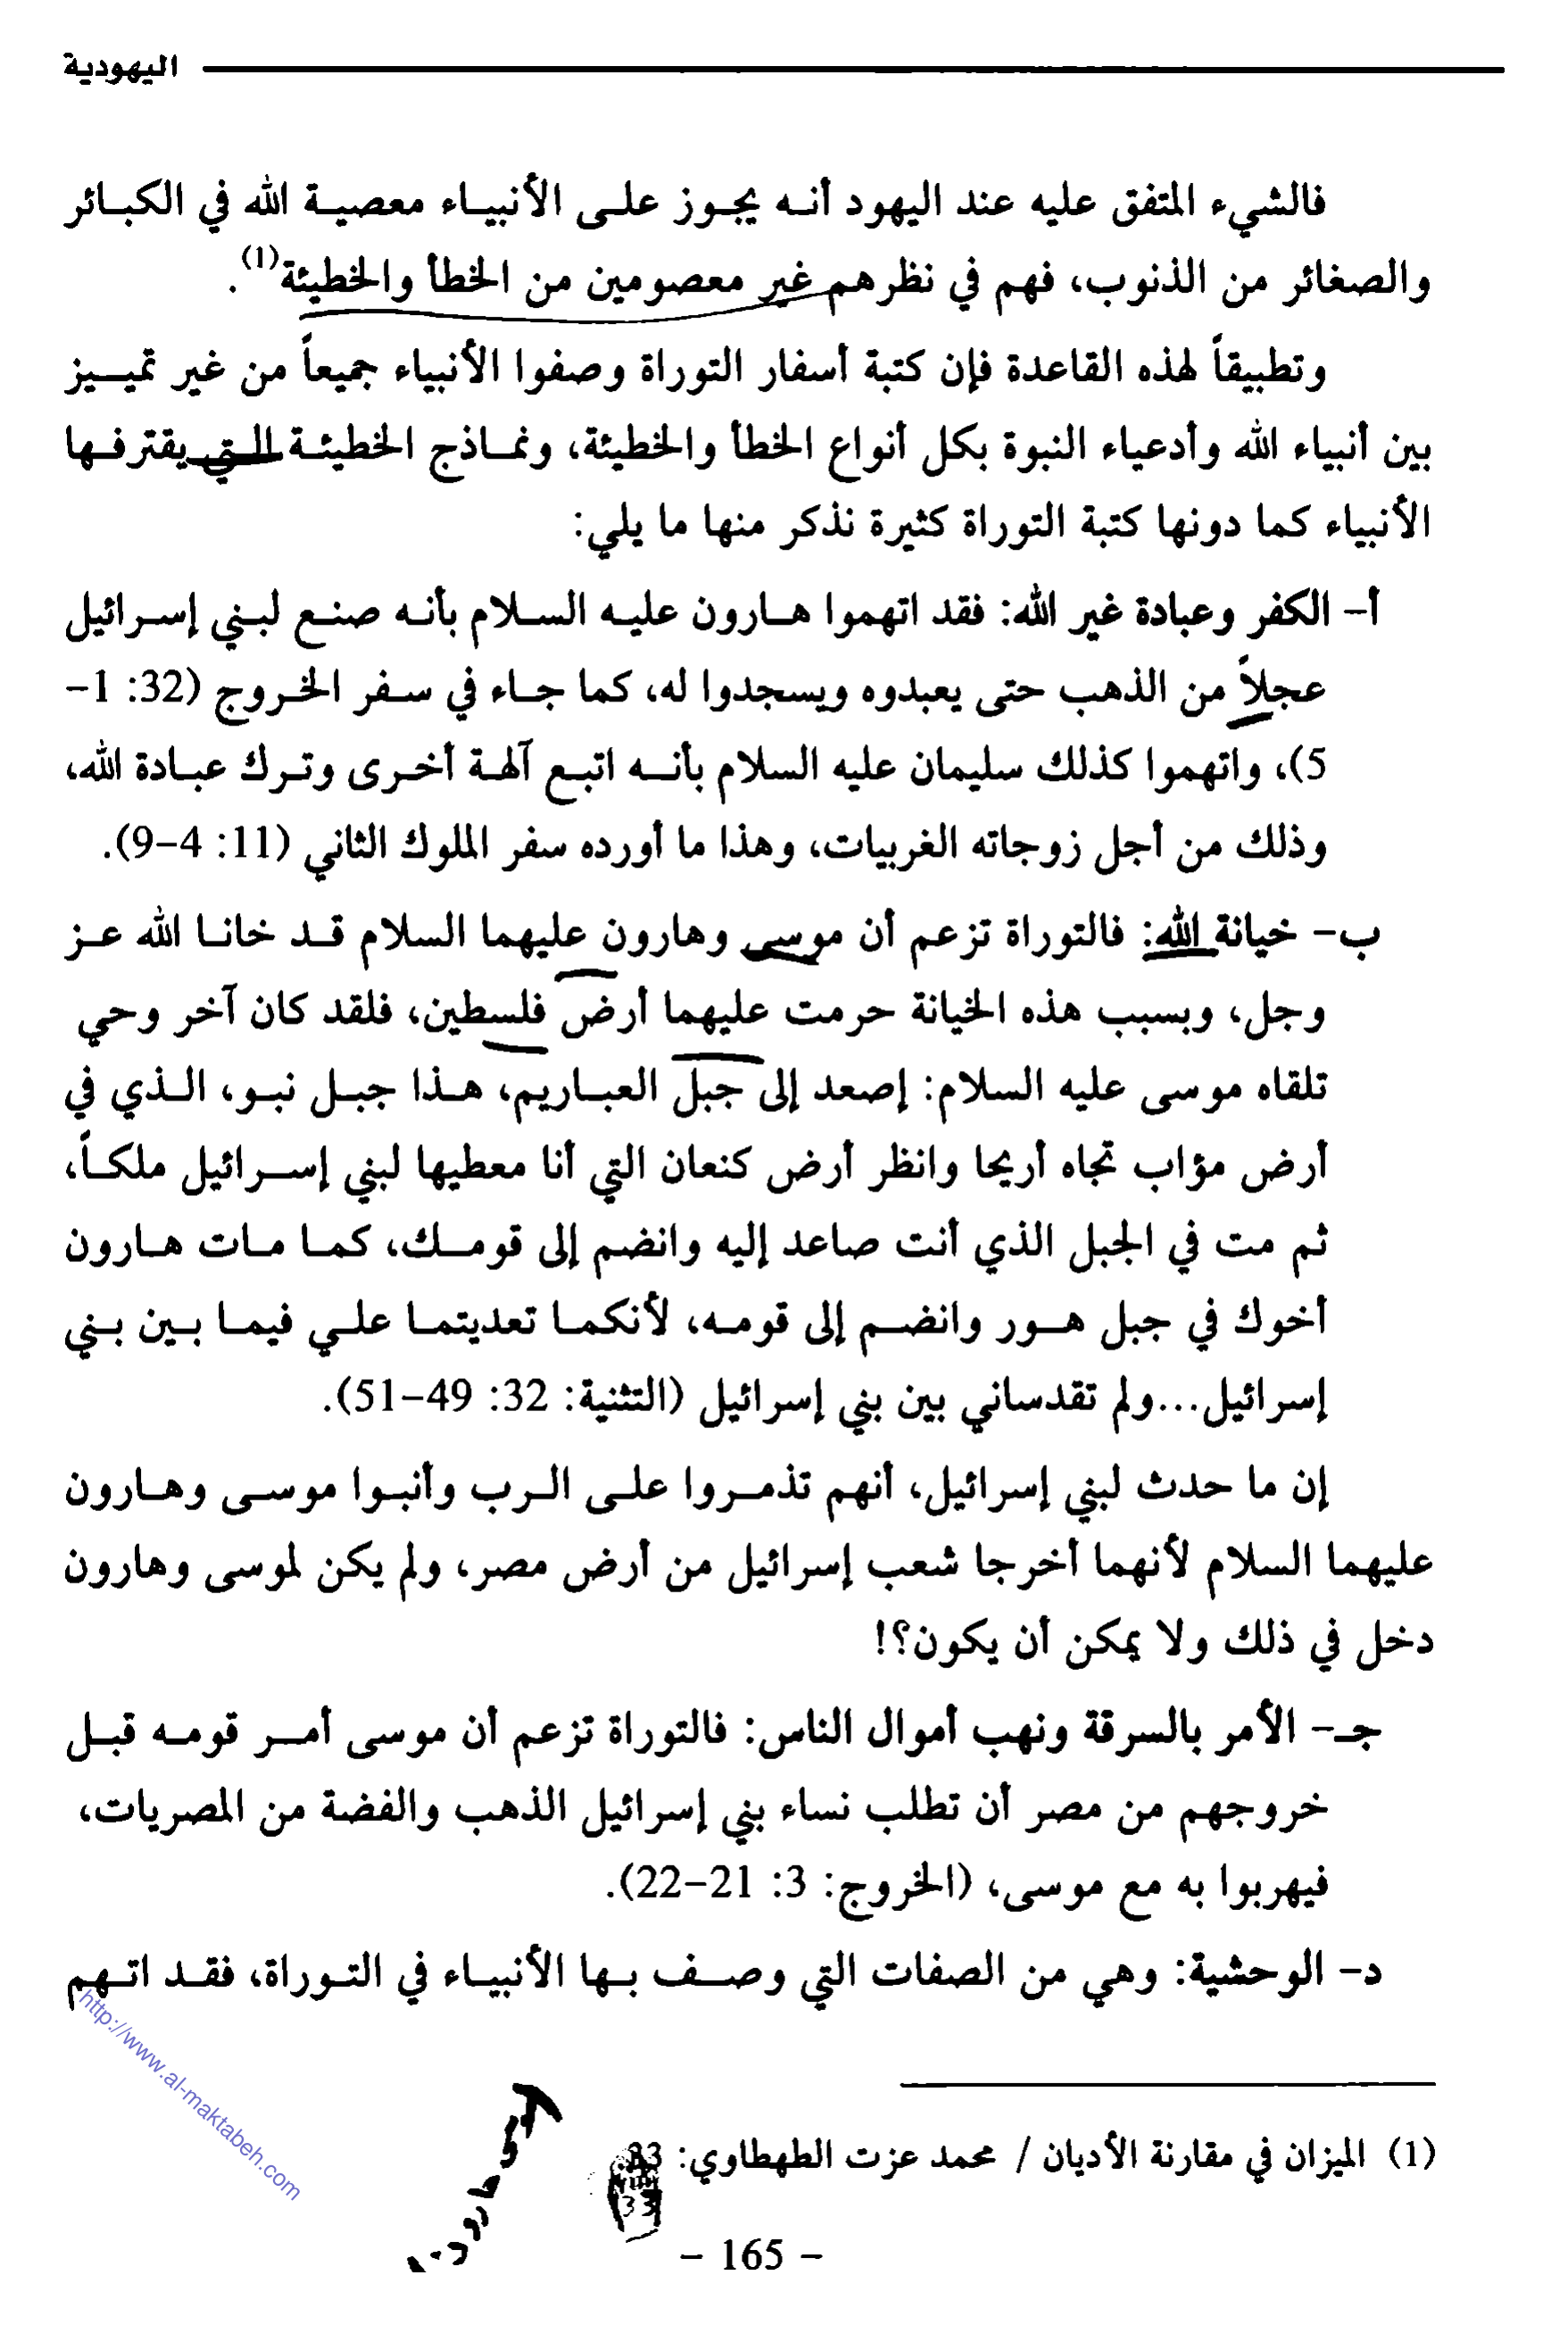 اليهودية
فالشيء المتفق عليه عند اليهود أنه يجوز على الأنبياء معصية الله في الكبائر
والصغائر من الذنوب، فهم في نظرهم غير معصومين من الخطأ والخطيئة(1).
وتطبيقاً لهذه القاعدة فإن كتبة أسفار التوراة وصفوا الأنبياء جميعاً من غير تمييز
بين أنبياء الله وأدعياء النبوة بكل أنواع الخطأ والخطيئة، ونماذج الخطيئة التي يقترفها
الأنبياء كما دونها كتبة التوراة كثيرة نذكر منها ما يلي:
أ- الكفر وعبادة غير الله: فقد اتهموا هارون عليه السلام بأنه صنع لبني إسرائيل
عجلاً من الذهب حتى يعبدوه ويسجدوا له، كما جاء في سفر الخروج (32: 1-
5)، واتهموا كذلك سليمان عليه السلام بأنه اتبع آلهة أخرى وترك عبادة الله،
وذلك من أجل زوجاته الغربيات، وهذا ما أورده سفر الملوك الثاني (11: 4-9).
ب- خيانة الله: فالتوراة تزعم أن موسى وهارون عليهما السلام قد خانا الله عز
وجل، وبسبب هذه الخيانة حرمت عليهما أرض فلسطين، فلقد كان آخر وحي
تلقاه موسى عليه السلام: إصعد إلى جبل العباريم، هذا جبل نبو، الذي في
أرض مؤاب تجاه أريحا وانظر أرض كنعان التي أنا معطيها لبني إسرائيل ملكاً،
ثم مت في الجبل الذي أنت صاعد إليه وانضم إلى قومك، كما مات هارون
أخوك في جبل هور وانضم إلى قومه، لأنكما تعديتما علي فيما بين بني
إسرائيل...ولم تقدساني بين بني إسرائيل (التثنية: 32: 49-51).
إن ما حدث لبني إسرائيل، أنهم تذمروا على الرب وأنبوا موسى وهارون
عليهما السلام لأنهما أخرجا شعب إسرائيل من أرض مصر، ولم يكن لموسى وهارون
دخل في ذلك ولا يمكن أن يكون؟!
جـ- الأمر بالسرقة ونهب أموال الناس: فالتوراة تزعم أن موسى أمر قومه قبل
خروجهم من مصر أن تطلب نساء بني إسرائيل الذهب والفضة من المصريات،
فيهربوا به مع موسى، (الخروج: 3: 21-22).
د- الوحشية: وهي من الصفات التي وصف بها الأنبياء في التوراة، فقد اتهم
http://www.al-maktabeh.com
(1) الميزان في مقارنة الأديان / محمد عزت الطهطاوي: 33
- 165 -